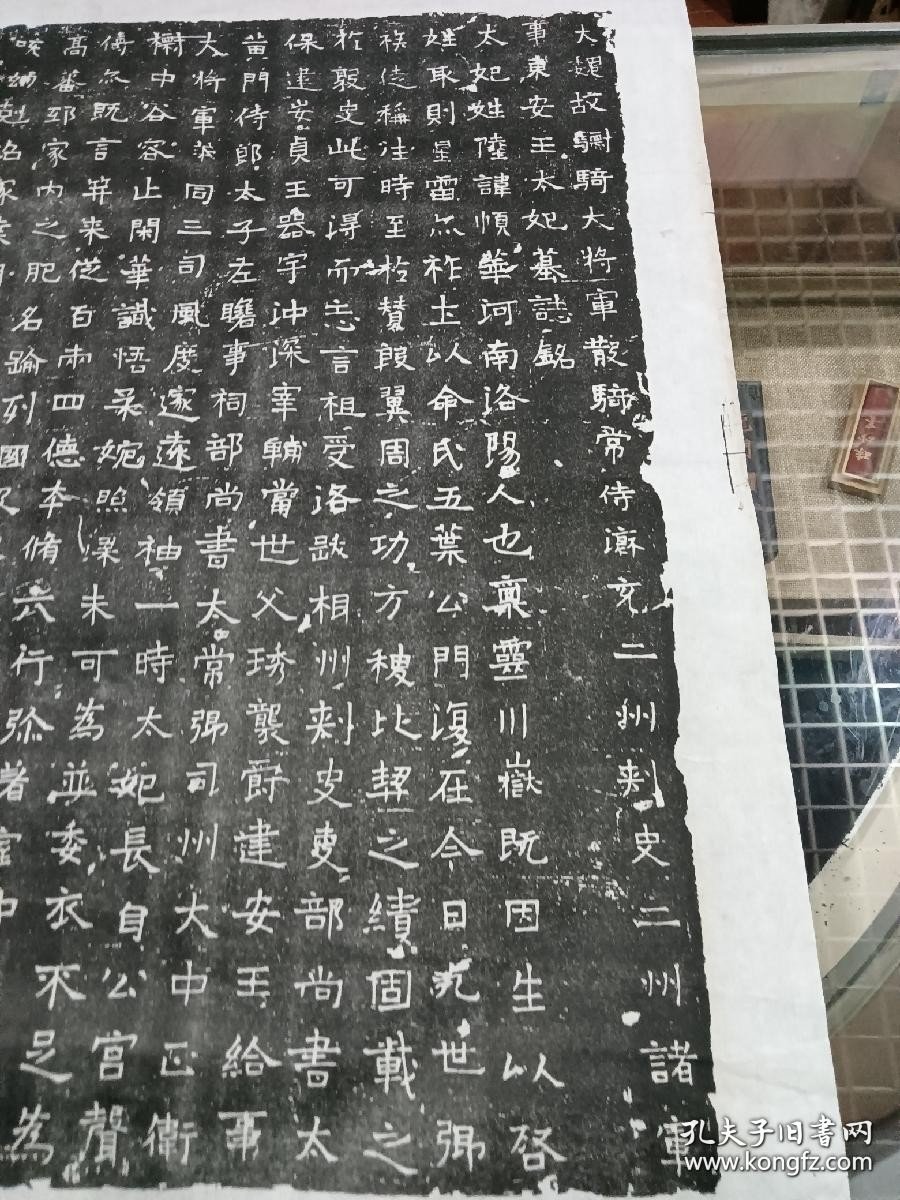 大魏故驃騎大將軍散騎常侍瀛兗二州刾史二州諸軍
事東安王太妃墓誌銘
太妃姓陸諱順華河南洛陽人也稟靈川嶽既因生以啓
姓取則星雷亦祚土以命氏五葉公門復在今日九世卿
族徒稱往時至於贊殷翼周之功方稷比契之績固載之
於殷史此可得而忘言祖受洛跋相州刾史吏部尚書太
保建安貞王器宇沖深宰輔當世父琇襲爵建安王給事
黃門侍郎太子左瞻事祠部尚書太常卿司州大中正衛
大將軍儀同三司風度邃遠領袖一時太妃長自公宮聲
中谷容止閑華識悟柔婉照梁未可為並委衣不足為
傅亦既言笄来從百兩四德本脩六行弥著中
高蕃邦家内之肥名踰列國
孔夫子旧書网
www.kongfz.com